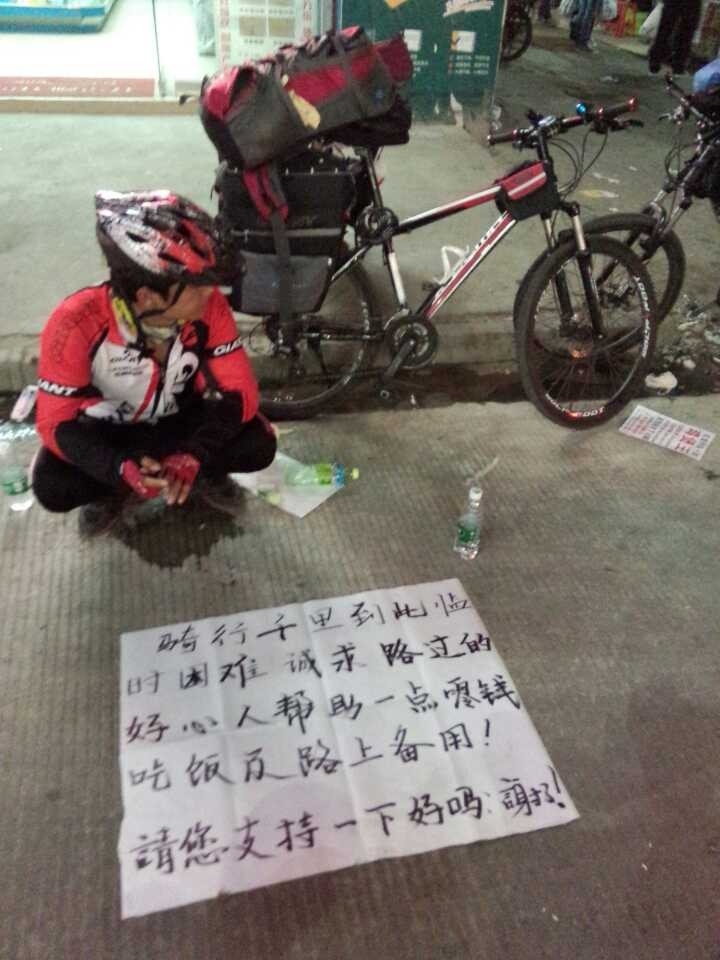 骑行千里到此临
时困难诚求路过的
好心人帮助一点零钱
吃饭及路上备用！
請您支持一下好吗：謝了！
GIANT